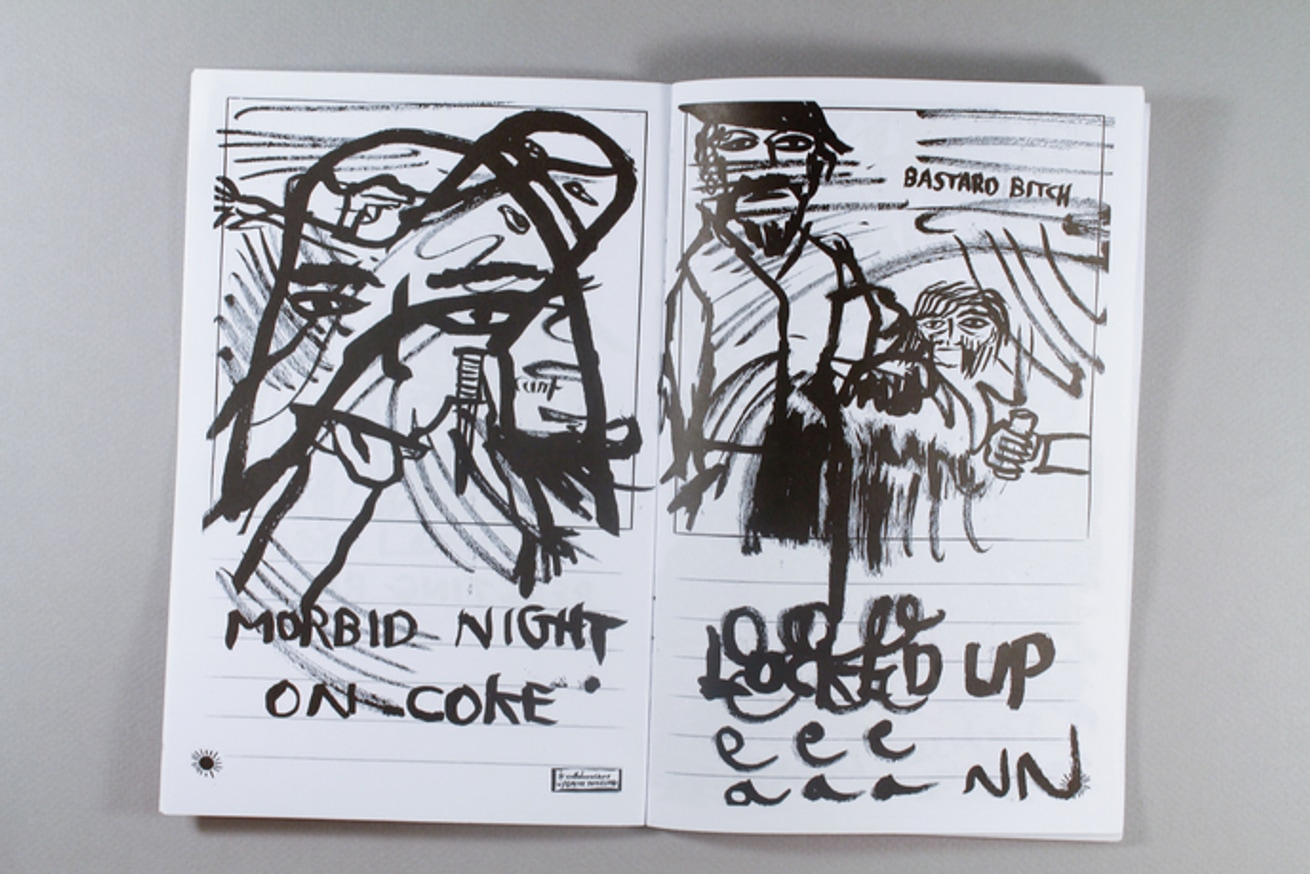 MORBID NIGHT
ON COKE
BASTARD BITCH
LOCKED UP
e e e
a a a NN